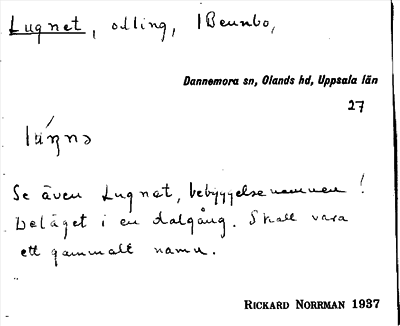 Lugnet, odling, 1 Beunbo,
Dannemora sn, Olands hd, Uppsala län
27
Se även Lugnet, bebyggelsenamnen!
Beläget i en dalgång. Skall vara
ett gammalt namn.
RICKARD NORRMAN 1937